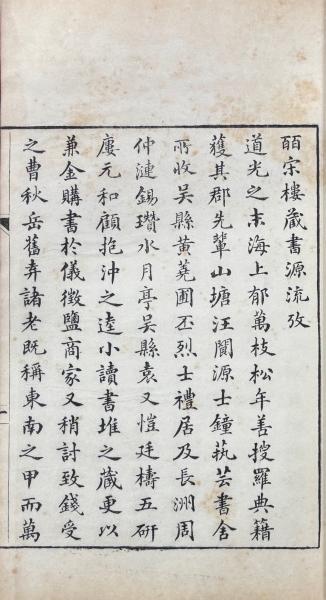 皕宋樓藏書源流攷
道光之末海上郁萬枝松年善搜羅典籍
獲其郡先輩山塘汪閬源士鐘藝芸書舍
所收吳縣黃蕘圃丕烈士禮居及長洲周
仲漣錫瓚水月亭吳縣袁又愷廷檮五硏
廔元和顧抱沖之逵小讀書堆之藏更以
兼金購書於儀徵鹽商家又稍討致錢受
之曹秋岳舊弆諸老旣稱東南之甲而萬